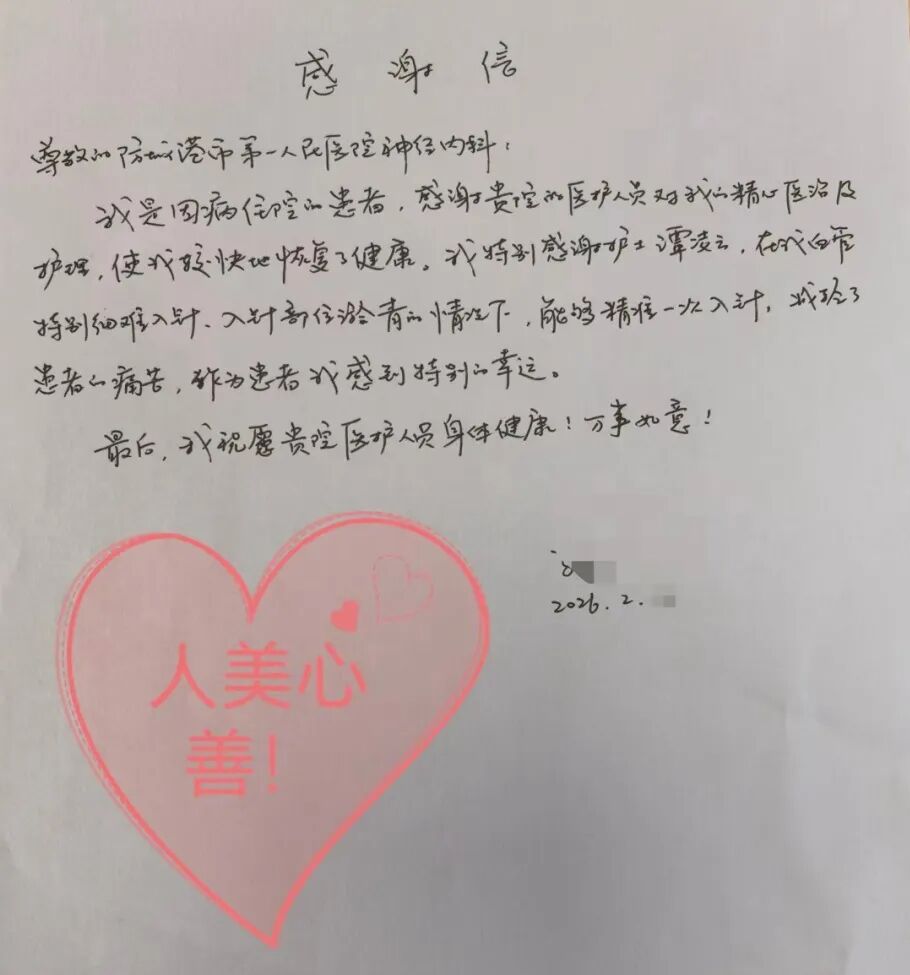 感谢信
尊敬的防城港市第一人民医院神经内科：
我是因病住院的患者，感谢贵院的医护人员对我的精心医治及
护理，使我较快地恢复了健康。我特别感谢护士谭凌云，在我血管
特别细难入针、入针部位淤青的情况下，能够精准一次入针，减轻了
患者的痛苦，作为患者我感到特别的幸运。
最后，我祝愿贵院医护人员身体健康！万事如意！
2026.2.
人美心
善！